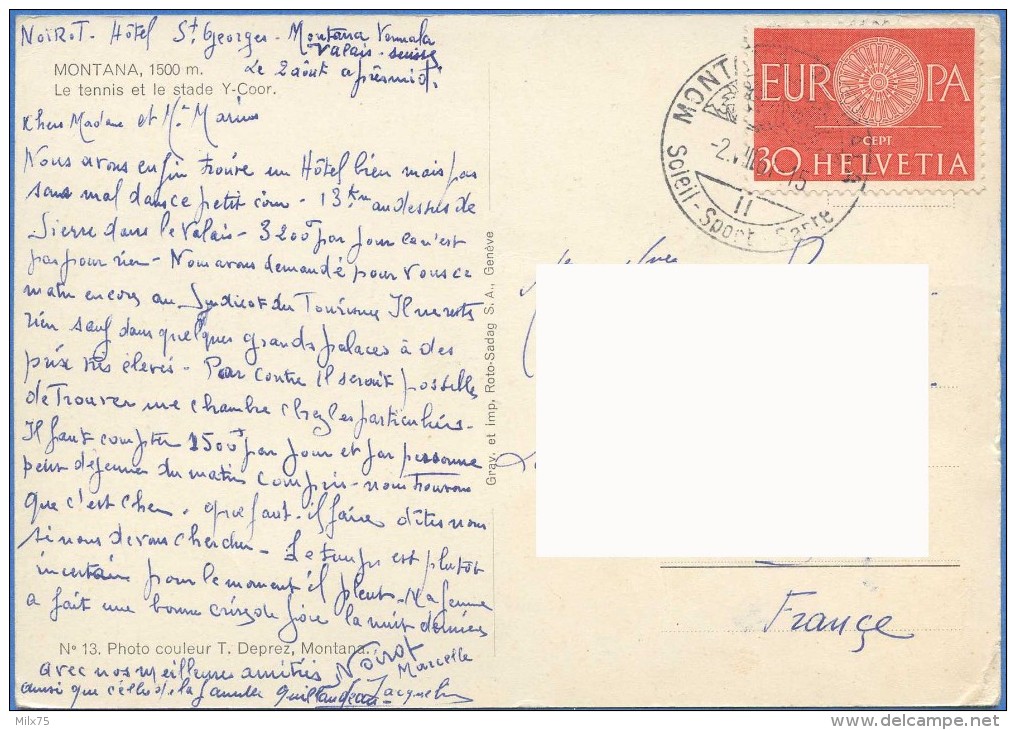 NOIROT - Hôtel St Georges - Montana Vermala
Valais - Suisse
Le 2 août après midi
MONTANA, 1500 m.
Le tennis et le stade Y-Coor.
Chers Madame et Mr Marius
Nous avons enfin trouvé un Hôtel bien mais pas
sans mal dans ce petit coin - 13 km au dessus de
Sierre dans le Valais - 3200 f par jour ça n'est
pas pour rien - Nous avons demandé pour vous ce
matin encore au Syndicat du Tourisme Il ne reste
rien sauf dans quelques grands palaces à des
prix très élevés - Par contre il serait possible
de trouver une chambre chez les particuliers -
Il faut compter 1500 f par jour et par personne
petit déjeuner du matin compris - nous trouvons
que c'est cher. que faut-il faire dites nous
si nous devons chercher - Le temps est plutôt
incertain pour le moment il pleut - Ma femme
a fait une bonne crise de foie la nuit dernière
Nº 13. Photo couleur T. Deprez, Montana.
avec nos meilleures amitiés Noirot
Marcelle
ainsi que celles de la famille Jacqueline
Grav. et imp. Roto-Sadag S. A., Genève
EUROPA
CEPT
30 HELVETIA
MONT
-2.VIII
15
II
Soleil - Sport - Santé
France
Milx75
www.delcampe.net